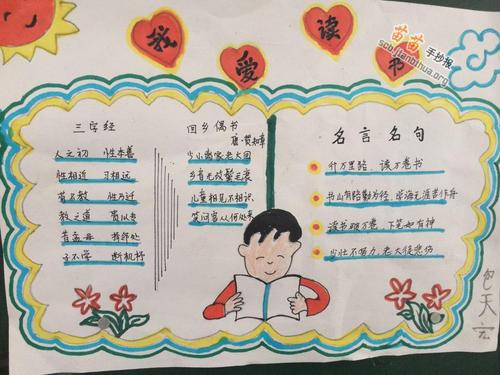 我 爱 读 书
苗苗手抄报
scb.jianbihua.org
三字经
人之初 性本善
性相近 习相远
苟不教 性乃迁
教之道 贵以专
昔孟母 择邻处
子不学 断机杼
回乡偶书
唐·贺知章
少小离家老大回
乡音无改鬓毛衰
儿童相见不相识
笑问客从何处来
名言名句
行万里路,读万卷书
书山有路勤为径,学海无涯苦作舟
读书破万卷,下笔如有神
少壮不努力,老大徒悲伤